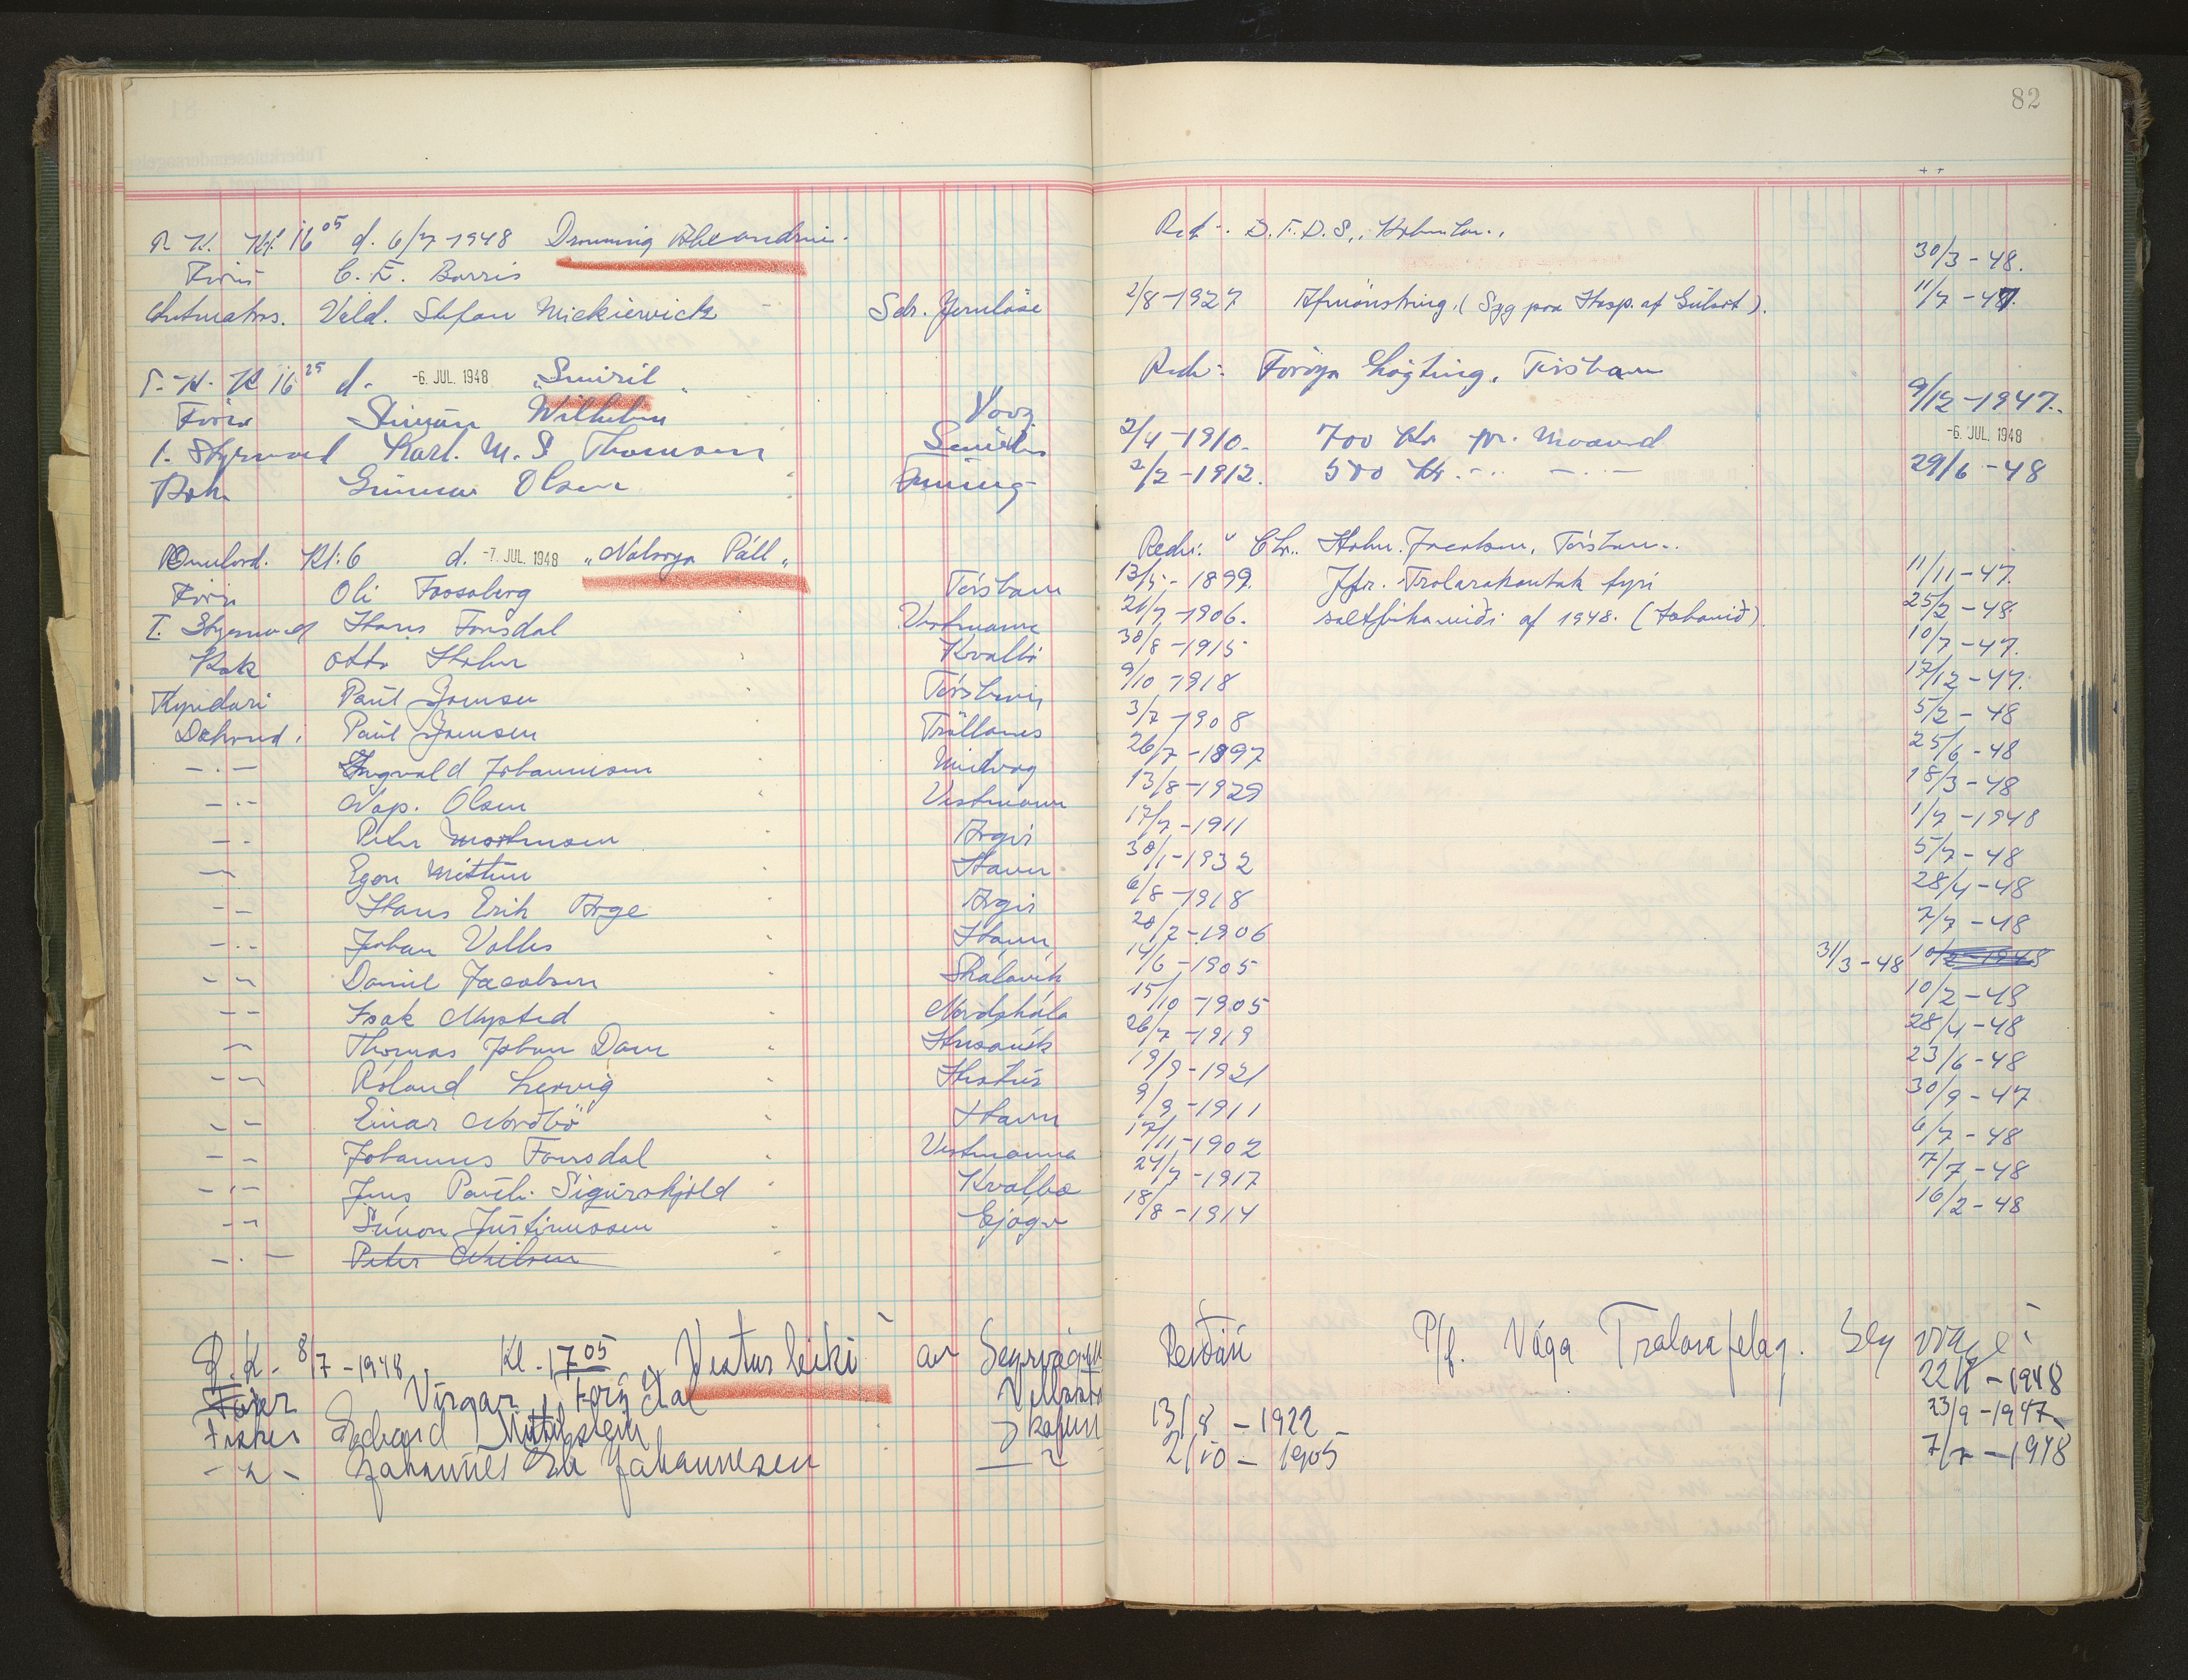 82
P. K. Kl. 16 05 d. 6/7 1948 Dronning Alexandrine. Red:. D.F.D.S., Kbhn.
30/3-48.
Förir C. E. Barris
Vald. Stefan Mickiewick Sdr. Jernløse 2/8-1927 Afmönstring. (Syg paa Hosp. af Gulsot). 11/7-47.
P. K. Kl 16 25 d. -6. JUL. 1948 "Smiril" Red:. Föroya Lögting, Tórshavn
9/12-1947.
Förir Simun Wilhelm Vaag
1. Styrmand Karl. M. S Thomsen 2/4-1910. 700 Kr pr. maaned -6. JUL. 1948
Gunnar Olsen 2/2-1912. 500 Kr. -.. -.- 29/6-48
Kl: 6 d. -7. JUL. 1948 "Nolsoya Páll" Redr: Chr. Holm. Jacobsen, Tórshavn.
Förir Oli Fossaberg Tórshavn 13/5-1899. Jfr. Trolarakontrak fyri 11/11-47.
I. Styrmand Hans Fonsdal Vestmanna 21/7-1906. saltfiskaveiði af 1948. 25/2-48
Kok Otto Holm Kvalbö 30/8-1915 10/7-47.
Kyndari Paul Joensen Tórshavn 9/10-1918 17/12-47.
Paul Joensen Tröllanes 3/7-1908 5/2-48
-.- Ingvald Johannesen Midvag 26/7-1897 25/6-48
-.- Nap. Olsen Vestmann 13/8-1929 18/3-48
-.- Peter Mortensen Argir 17/7-1911 1/7-1948
- Egon Mittun Havn 30/1-1932 5/7-48
-- Hans Erik Arge Argir 6/8-1918 28/4-48
-.- Johan Valles Havn 20/2-1906 7/7-48
-- Daniel Jacobsen Skálavik 14/6-1905 31/3-48
-- Isak Nysted Nordskála 15/10-1905 10/2-48
- Thomas Johan Dam Húsavik 26/7-1919 28/4-48
-- Roland Lervig 19/9-1921 23/6-48
-- Einar Nordbö Havn 9/9-1911 30/9-47
-- Johannes Fonsdal Vestmanna 17/11-1902 6/7-48
-.- Jens Pauli Sigurskjöld Kvalbø 24/7-1917 7/7-48
-- Simon Justinussen Gjógv 18/8-1914 16/2-48
-.- Peter Nielsen
P. K. 8/7-1948 Kl - 17 05 "Vesturleiki av Reiðarí P/f. Vága Tralarafelag.
22/1-1948
13/8-1922 23/9-1947
Fisker Edvard
-"- Johannes Johannesen 2/10-1905 7/7-1948